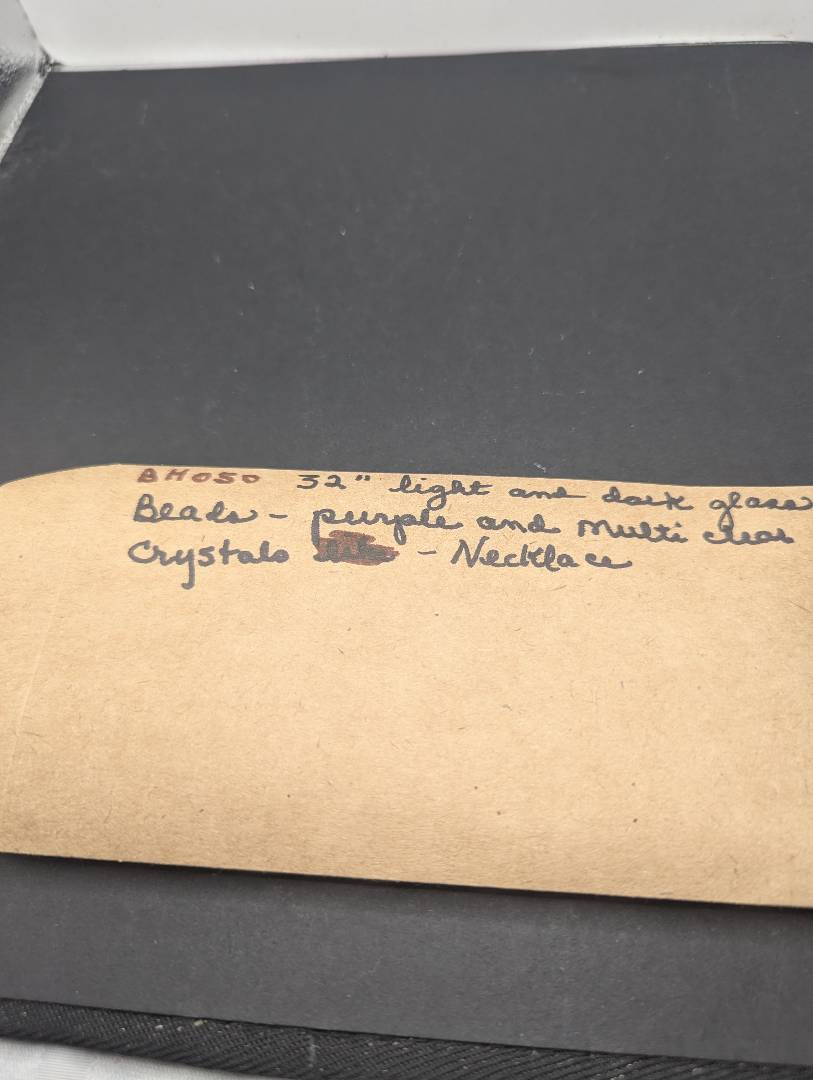 BH050 32" light and dark glass
Beads - purple and Multi clear
Crystals - Necklace